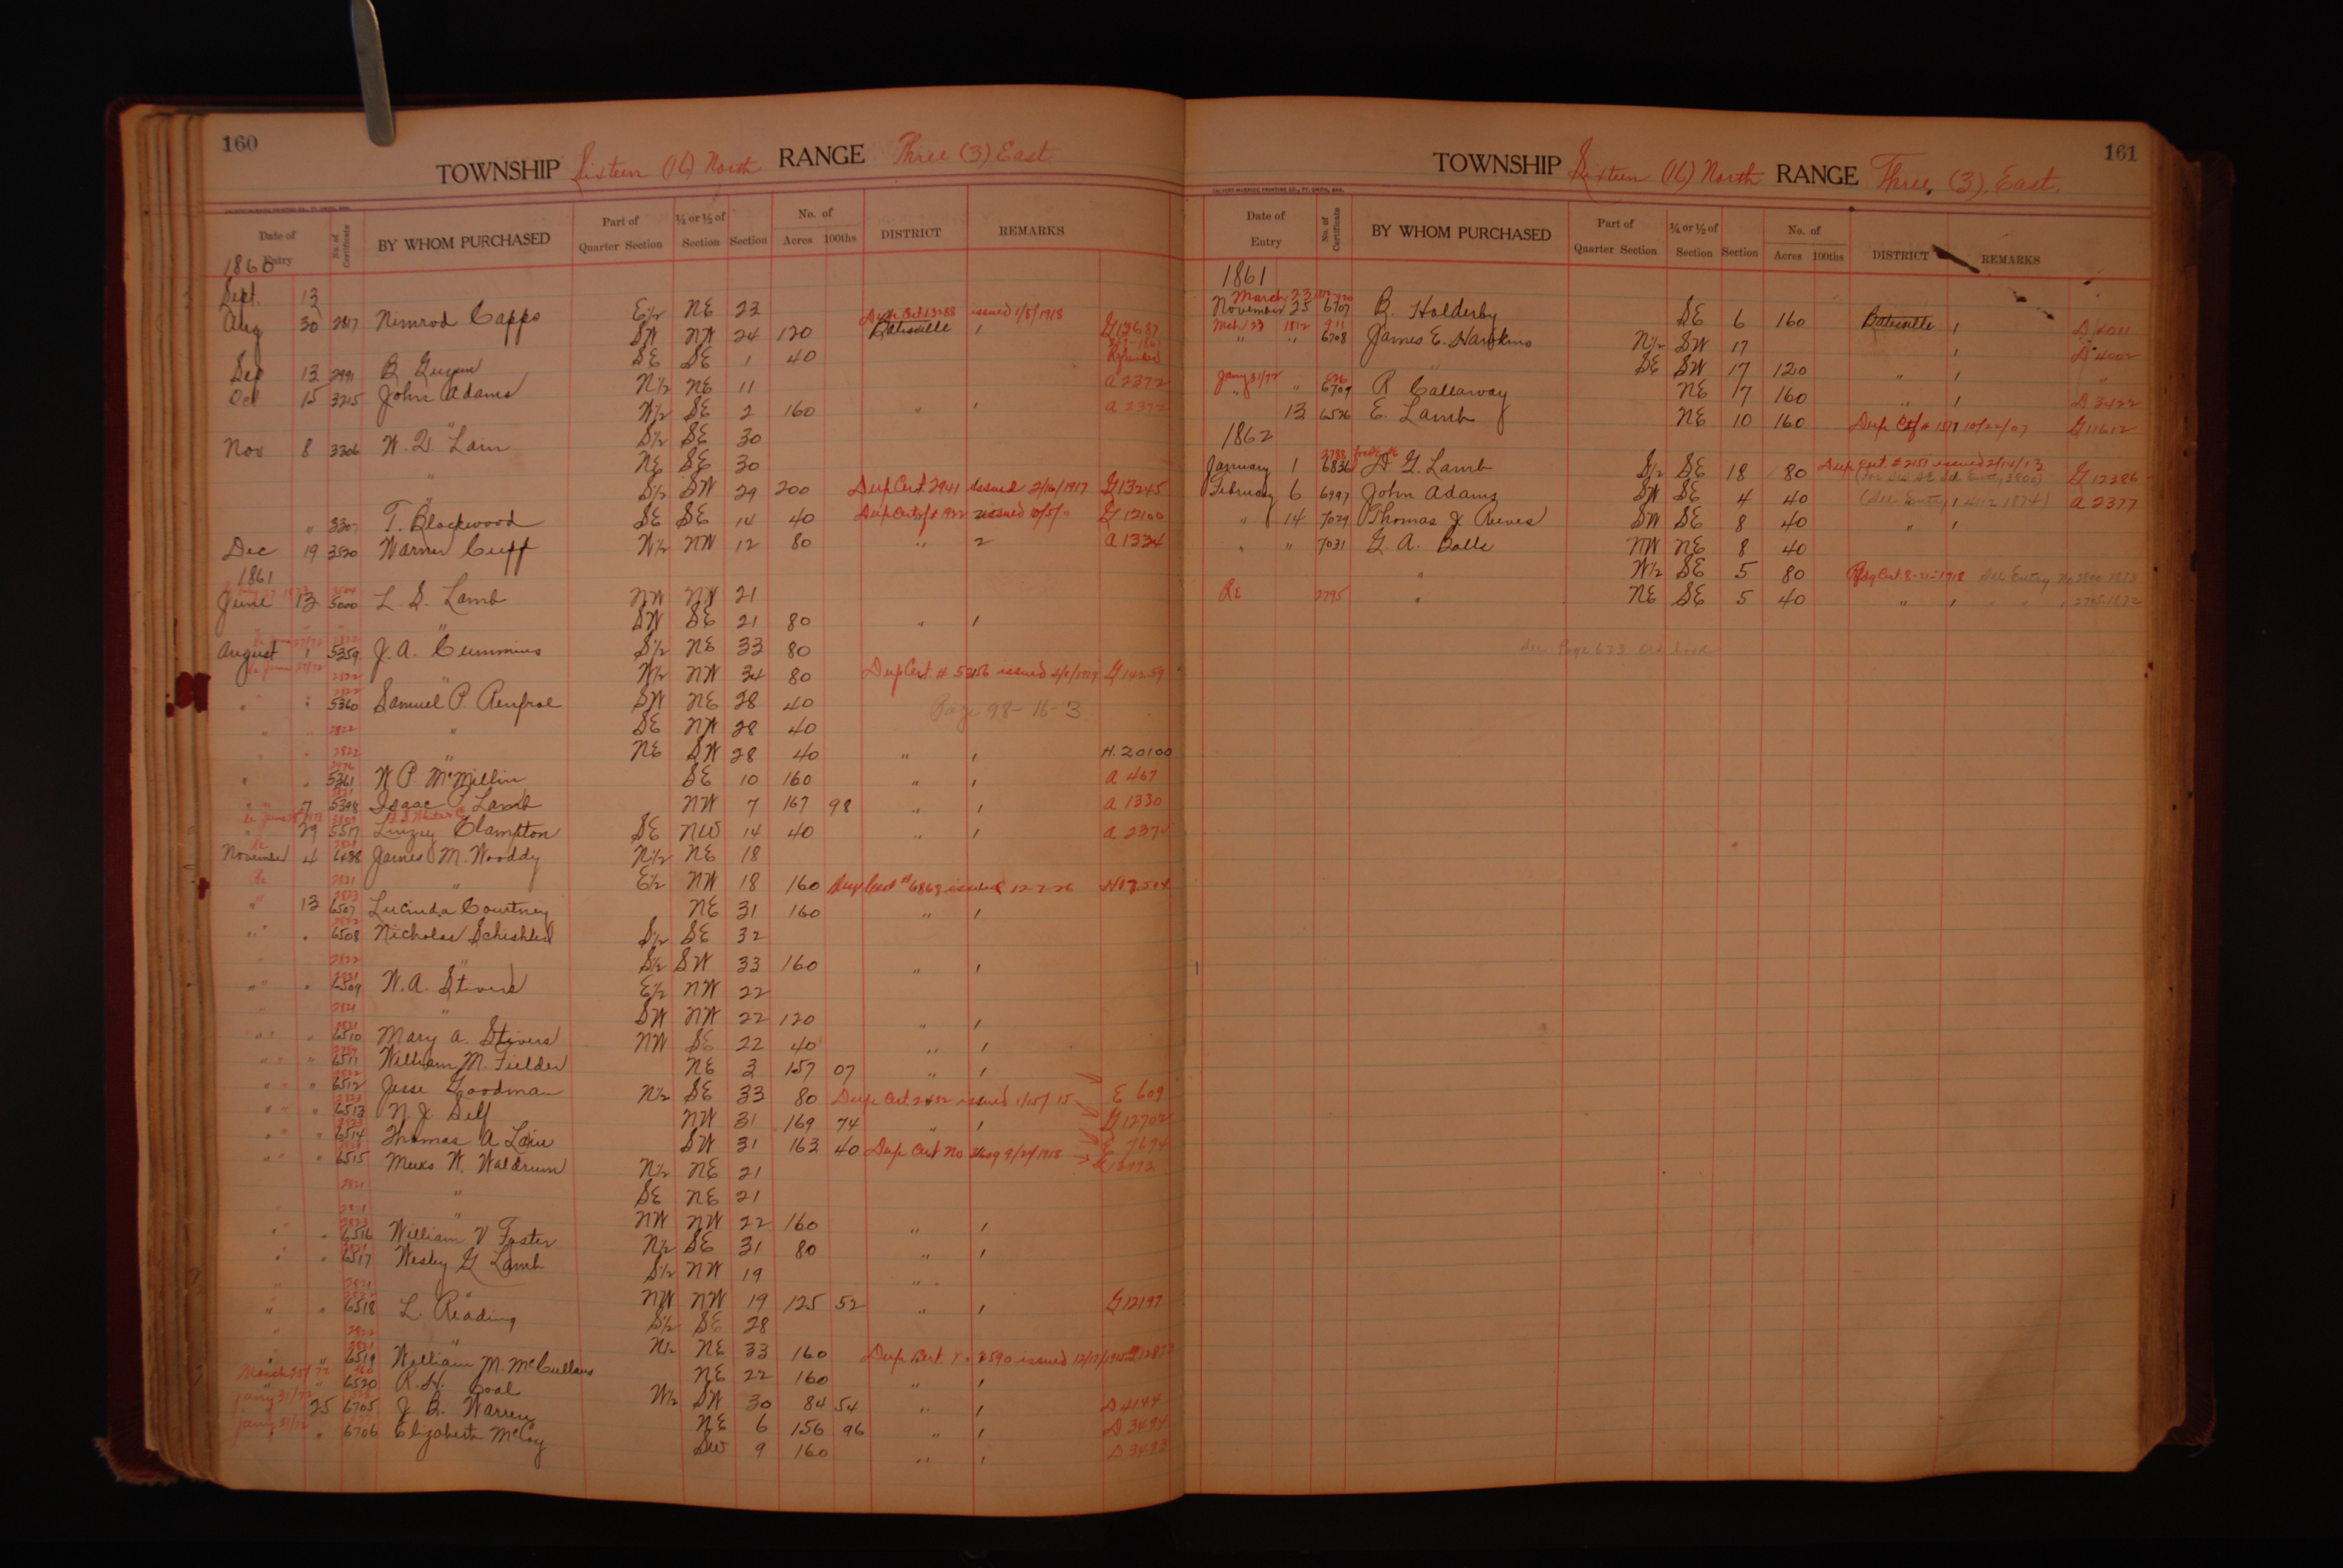 160
TOWNSHIP Sixteen (16) North RANGE Three (3) East
Date of Entry No. of Certificate BY WHOM PURCHASED Part of Quarter Section ¼ or ½ of Section Section No. of Acres 100ths DISTRICT REMARKS
1860
Sept. 13
Aug 30 2817 Nimrod Capps E½ NE 23 issued 1/5/1918
SW NW 24 120 Batesville 1 G13687
Sep 13 2991 B SE SE 1 40
Oct 15 3215 John Adams N½ NE 11 A 2372
" W½ SE 2 160 " 1 A 2372
Nov 8 3306 W. D. Lain S½ SE 30
NE SE 30
" S½ SW 29 200 Dup Cert. 2941 Issued 2/16/1917 G13245
" 3307 T. Blackwood SE SE 14 40 Dup Cert # 1922 issued G 12100
Dec 19 3520 Warner Cuff W½ NW 12 80 " 2 A 1334
1861
June 13 5000 L. S. Lamb NW NW 21
" SW SE 21 80 " 1
August 1 5359 J. A. Cummins S½ NE 33 80
2822 " W½ NW 34 80 Dup Cert. # issued G 14259
" " 5360 Samuel P. Renfroe SW NE 28 40 Page 98-16-3
" " 2822 " SE NW 28 40
" " 2822 " NE SW 28 40 " 1 H. 20100
" " 5361 W P. McMillin SE 10 160 " 1 A 467
" 7 5398 Isaac P. Lamb NW 7 167 98 " 1 A 1330
" 29 5517 Linzey Clampton SE NW 14 40 " 1 A 2374
November 4 6488 James M. Wooddy N½ NE 18
Re 2821 " E½ NW 18 160 Dup Cert # 6868 issued 12-2-26
" 13 6507 Lucinda Courtney NE 31 160 " 1
" " 6508 Nicholas S½ SE 32
" 2822 " S½ SW 33 160 " 1
" " 6509 W. A. Stivers E½ NW 22
" 2821 " SW NW 22 120 " 1
" " 6510 Mary A. Stivers NW SE 22 40 " 1
" " 6511 William M. Fielder NE 3 157 07 " 1
" " 6512 Jesse Goodman N½ SE 33 80 Dup Cert issued 1/15/15 E 609
" " 6513 N. J. Self NW 31 169 74 " 1 G 12702
" " 6514 Thomas A Lain SW 31 163 40 Dup Cert No 9/24/1918 E 7694
" " 6515 Meeks W. Waldrum N½ NE 21
2821 " SE NE 21
2821 " NW NW 22 160 " 1
" " 6516 William V Foster N½ SE 31 80 " 1
" " 6517 Wesley G Lamb S½ NW 19 "
" 2821 " NW NW 19 125 52 " 1 G 12197
" " 6518 L. Reading S½ SE 28
" 2822 " N½ NE 33 160 Dup Cert. 3590 issued
" " 6519 William M. McCullans NE 22 160 " 1
March 25/72 " 6520 R. H. Coal W½ SW 30 84 54 " 1 D 4144
Jany 31/72 25 6705 J. B. Warren NE 6 156 96 " 1 D 3494
Jany 31/72 " 6706 Elizabeth McCoy SW 9 160 " 1 D 3493
161
TOWNSHIP Sixteen (16) North RANGE Three, (3), East.
Date of Entry No. of Certificate BY WHOM PURCHASED Part of Quarter Section ¼ or ½ of Section Section No. of Acres 100ths DISTRICT REMARKS
1861
March 23 1872
November 25 6707 B. Holderby SE 6 160 Batesville 1 D 4011
Mch 23 1872 911
" " 6708 James E. Hawkins N½ SW 17 1 D 4002
" SE SW 17 120 " 1 "
Jany 31/72
" " 6709 R Callaway NE 17 160 " 1 D 3422
13 6526 E. Lamb NE 10 160 Dup Cert # 10/22/07 G11612
1862
January 1 6836 G. Lamb S½ SE 18 80 Dup Cert. # 2151 issued 2/14/13 G 12386
February 6 6997 John Adams SW SE 4 40 (See Entry 412 1874) A 2377
" 14 7029 Thomas J Reeves SW SE 8 40 " 1
" " 7031 G. A. Balls NW NE 8 40
" W½ SE 5 80 8-21-1918 See Entry No 3800 1873
Re 2795 " NE SE 5 40 " 1 " " " 2795-1872
See Page 623 Old book